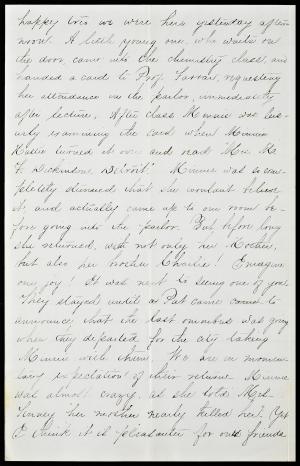 happy trio we were here yesterday after-
noon. A little young one, who waits on
the door, came into the chemistry class, and
handed a card to Prof. requesting
her attendance in the parlor, immediately
after lecture. After class Minnie was
examining the card when Minnie
turned it over and read "Mrs. M.
F. Dickinson, Detroit." Minnie was so com-
pletely dismayed that she wouldnt believe
it, and actually came up to our room be-
fore going into the parlor. But, before long
she returned, with not only her Mother,
but also her brother Charlie! Imagine
our joy! It was next to seeing one of you.
They stayed until a Pat came round to
announce that the last omnibus was going
when they departed for the city taking
Minnie with them. We are in momen-
tary expectation of their return. Minnie
was almost crazy, as she told Mrs.
her mother nearly killed her. Yet
I think it is pleasanter for ones friends